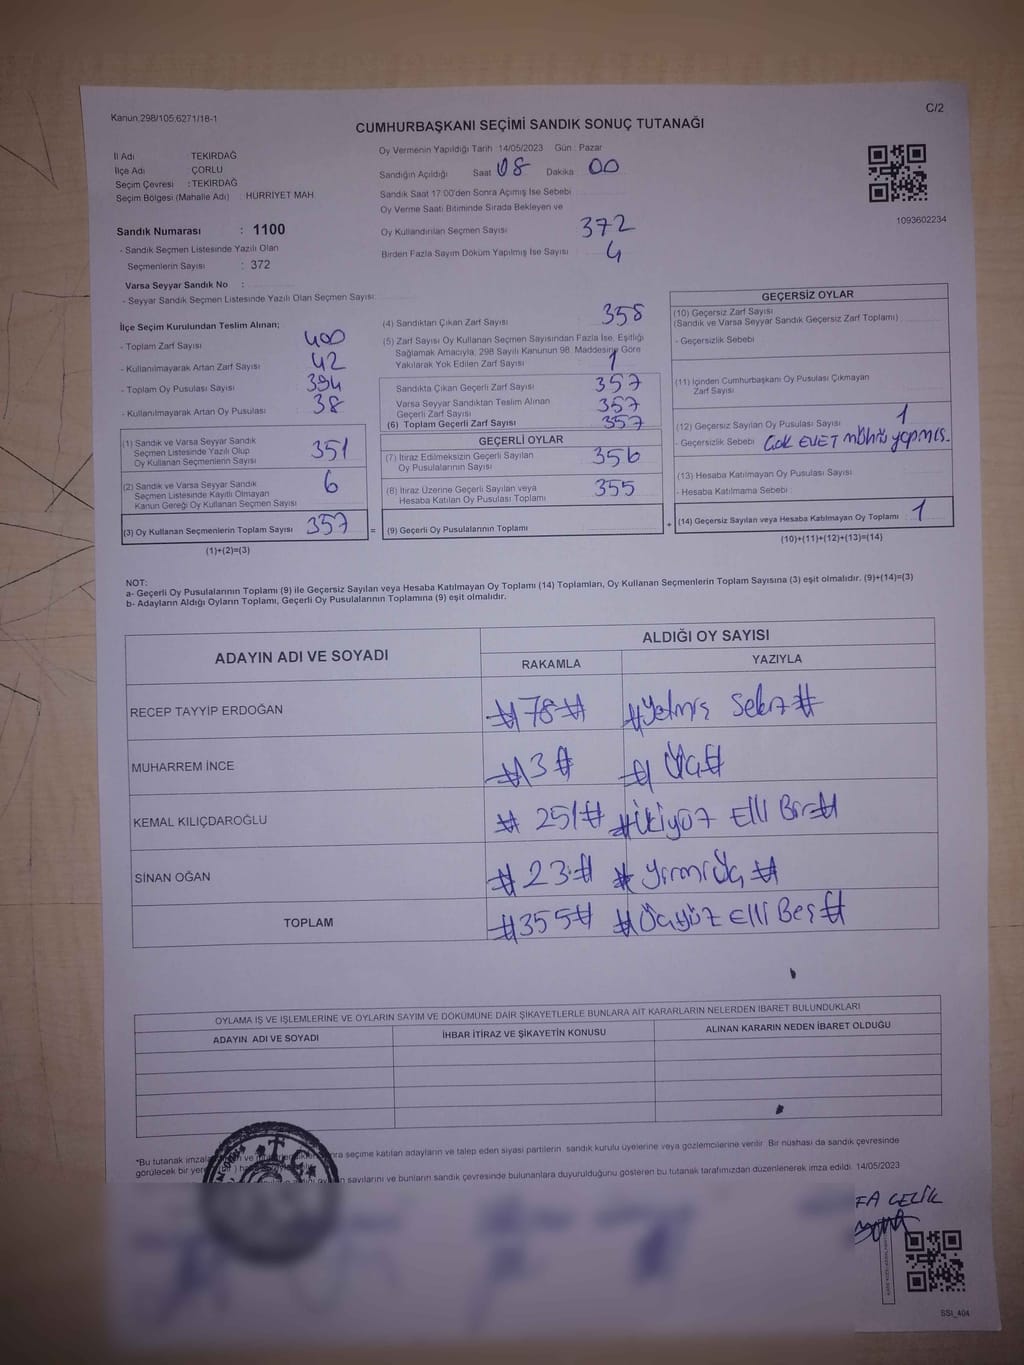 C/2
Kanun,298/105;6271/18-1
CUMHURBAŞKANI SEÇİMİ SANDIK SONUÇ TUTANAĞI
İl Adı : TEKİRDAĞ
İlçe Adı : ÇORLU
Seçim Çevresi : TEKİRDAĞ
Seçim Bölgesi (Mahalle Adı) : HÜRRİYET MAH
Sandık Numarası : 1100
- Sandık Seçmen Listesinde Yazılı Olan
Seçmenlerin Sayısı : 372
Varsa Seyyar Sandık No :
- Seyyar Sandık Seçmen Listesinde Yazılı Olan Seçmen Sayısı:
Oy Vermenin Yapıldığı Tarih : 14/05/2023 Gün : Pazar
Sandığın Açıldığı Saat 08 Dakika 00
Sandık Saat 17:00'den Sonra Açımış İse Sebebi
Oy Verme Saati Bitiminde Sırada Bekleyen ve
Oy Kullandırılan Seçmen Sayısı 372
Birden Fazla Sayım Döküm Yapılmış İse Sayısı 4
1093602234
İlçe Seçim Kurulundan Teslim Alınan;
- Toplam Zarf Sayısı 400
- Kullanılmayarak Artan Zarf Sayısı 42
- Toplam Oy Pusulası Sayısı 394
- Kullanılmayarak Artan Oy Pusulası 38
(1) Sandık ve Varsa Seyyar Sandık
Seçmen Listesinde Yazılı Olup
Oy Kullanan Seçmenlerin Sayısı 351
(2) Sandık ve Varsa Seyyar Sandık
Seçmen Listesinde Kayıtlı Olmayan
Kanun Gereği Oy Kullanan Seçmen Sayısı 6
(3) Oy Kullanan Seçmenlerin Toplam Sayısı 357 =
(1)+(2)=(3)
(4) Sandıktan Çıkan Zarf Sayısı 358
(5) Zarf Sayısı Oy Kullanan Seçmen Sayısından Fazla İse, Eşitliği
Sağlamak Amacıyla, 298 Sayılı Kanunun 98. Maddesine Göre
Yakılarak Yok Edilen Zarf Sayısı 1
Sandıkta Çıkan Geçerli Zarf Sayısı 357
Varsa Seyyar Sandıktan Teslim Alınan
Geçerli Zarf Sayısı 357
(6) Toplam Geçerli Zarf Sayısı 357
GEÇERLİ OYLAR
(7) İtiraz Edilmeksizin Geçerli Sayılan
Oy Pusulalarının Sayısı 356
(8) İtiraz Üzerine Geçerli Sayılan veya
Hesaba Katılan Oy Pusulası Toplamı 355
(9) Geçerli Oy Pusulalarının Toplamı +
GEÇERSİZ OYLAR
(10) Geçersiz Zarf Sayısı
(Sandık ve Varsa Seyyar Sandık Geçersiz Zarf Toplamı)
- Geçersizlik Sebebi
(11) İçinden Cumhurbaşkanı Oy Pusulası Çıkmayan
Zarf Sayısı
(12) Geçersiz Sayılan Oy Pusulası Sayısı 1
- Geçersizlik Sebebi Çok EVET mührü yapmış.
(13) Hesaba Katılmayan Oy Pusulası Sayısı
- Hesaba Katılmama Sebebi :
(14) Geçersiz Sayılan veya Hesaba Katılmayan Oy Toplamı : 1
(10)+(11)+(12)+(13)=(14)
NOT:
a- Geçerli Oy Pusulalarının Toplamı (9) ile Geçersiz Sayılan veya Hesaba Katılmayan Oy Toplamı (14) Toplamları, Oy Kullanan Seçmenlerin Toplam Sayısına (3) eşit olmalıdır. (9)+(14)=(3)
b- Adayların Aldığı Oyların Toplamı, Geçerli Oy Pusulalarının Toplamına (9) eşit olmalıdır.
ADAYIN ADI VE SOYADI ALDIĞI OY SAYISI
RAKAMLA YAZIYLA
RECEP TAYYİP ERDOĞAN #78# #Yetmiş Sekiz#
MUHARREM İNCE #3# # Üç#
KEMAL KILIÇDAROĞLU # 251# #İkiyüz Elli Bir#
SİNAN OĞAN #23# # Yirmi Üç #
TOPLAM #355# #Üçyüz Elli Beş#
OYLAMA İŞ VE İŞLEMLERİNE VE OYLARIN SAYIM VE DÖKÜMÜNE DAİR ŞİKAYETLERLE BUNLARA AİT KARARLARIN NELERDEN İBARET BULUNDUKLARI
ADAYIN ADI VE SOYADI İHBAR İTİRAZ VE ŞİKAYETİN KONUSU ALINAN KARARIN NEDEN İBARET OLDUĞU
*Bu tutanak seçime katılan adayların ve talep eden siyasi partilerin sandık kurulu üyelerine veya gözlemcilerine verilir. Bir nüshası da sandık çevresinde
görülecek bir sayılarını ve bunların sandık çevresinde bulunanlara duyurulduğunu gösteren bu tutanak tarafımızdan düzenlenerek imza edildi. 14/05/2023
FA ÇELİK
SSI_404